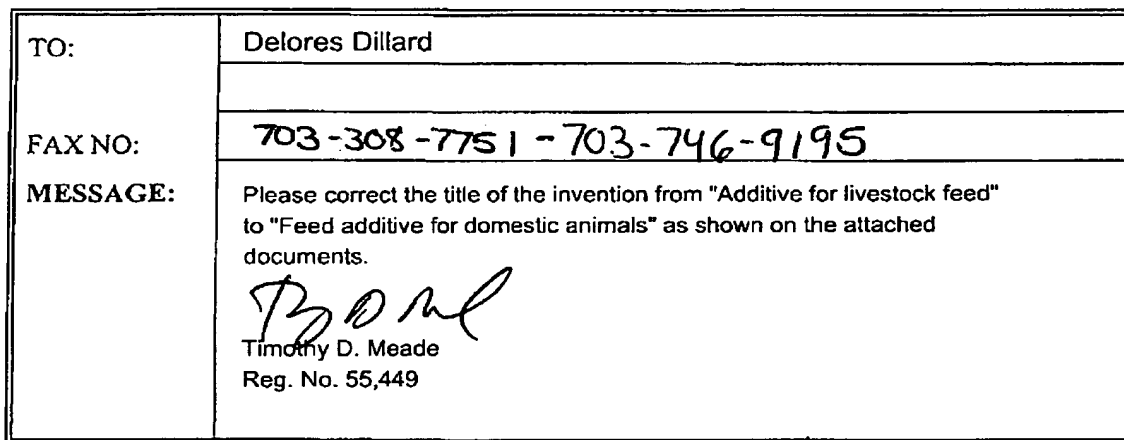 TO: Delores Dillard
FAX NO: 703-308-7751 - 703-746-9195
MESSAGE: Please correct the title of the invention from "Additive for livestock feed"
to "Feed additive for domestic animals" as shown on the attached
documents.
Timothy D. Meade
Reg. No. 55,449